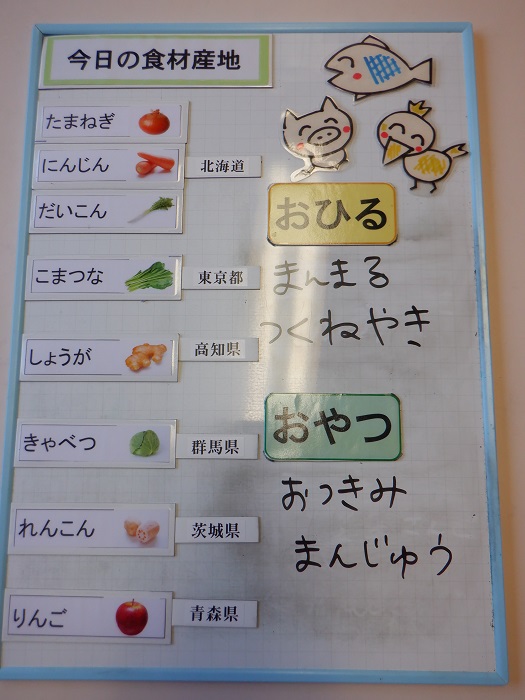 今日の食材産地
たまねぎ
にんじん 北海道
だいこん
こまつな 東京都
しょうが 高知県
きゃべつ 群馬県
れんこん 茨城県
りんご 青森県
おひる
まんまる
つくねやき
おやつ
おつきみ
まんじゅう